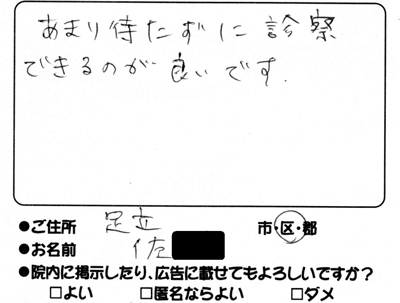 あまり待たずに診察
できるのが良いです.
●ご住所 足立 市・区・郡
●お名前 佐
●院内に掲示したり、広告に載せてもよろしいですか?
□よい □匿名ならよい □ダメ